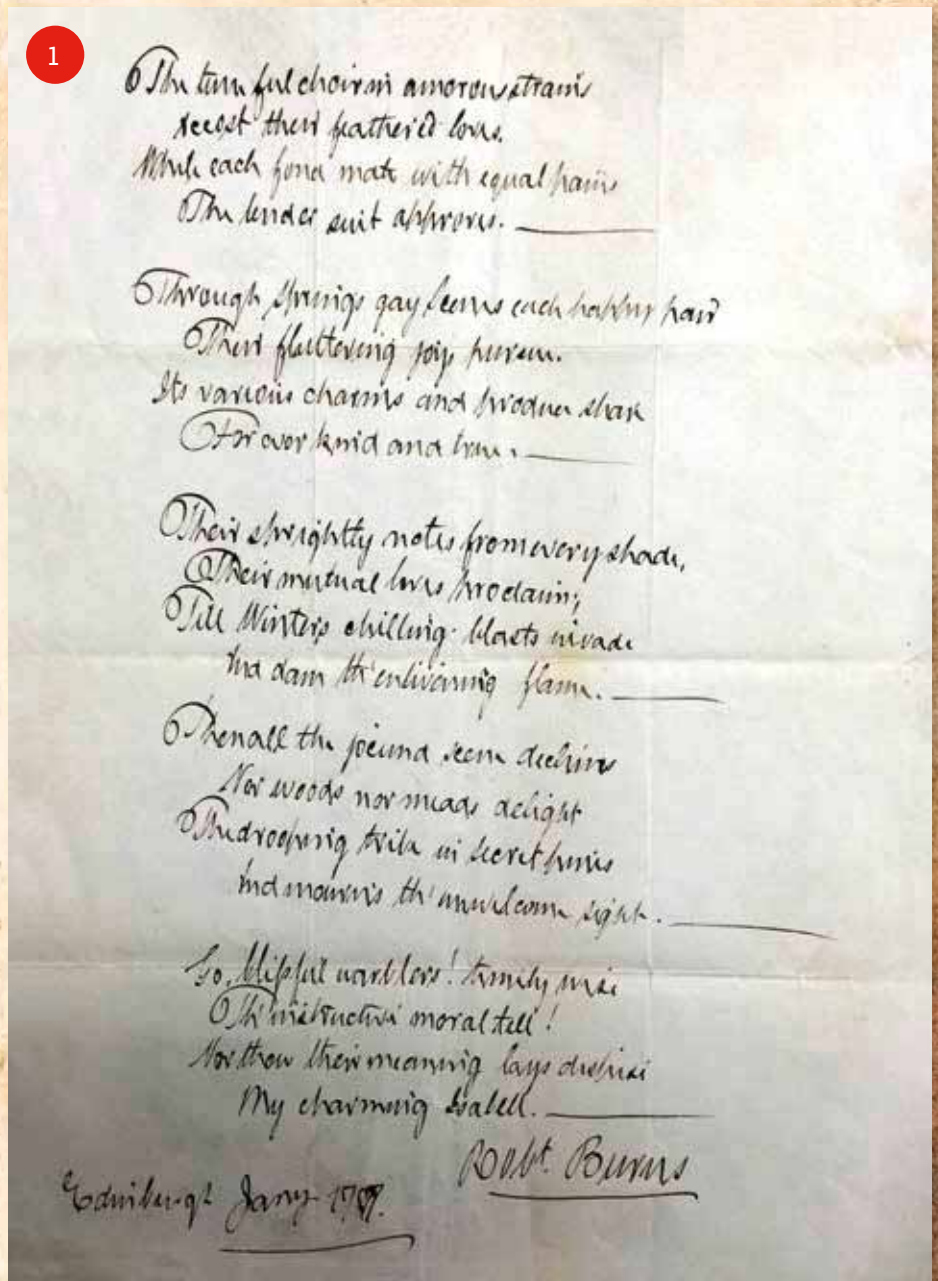 1
The tuneful choir in amorous strains
Accost their feather'd loves.
While each fond mate with equal pains
The tender suit approves.
Through Springs gay scenes each happy pair
Their fluttering joys pursue.
Its various charms and produce share
For ever kind and true.
Their sprightly notes from every shade,
Their mutual loves proclaim;
Till Winters chilling blasts invade
And dam th'enlivening flame.
Then all the jocund scene declines
Nor woods nor meads delight
The drooping tribe in secret pines
And mourns th'unwelcome sight.
Go, blissful warblers! timely wise
Th'instructive moral tell!
Nor thou their meaning lays despise
My charming Isabell.
Robt. Burns
Edinburgh Jany. 1787.